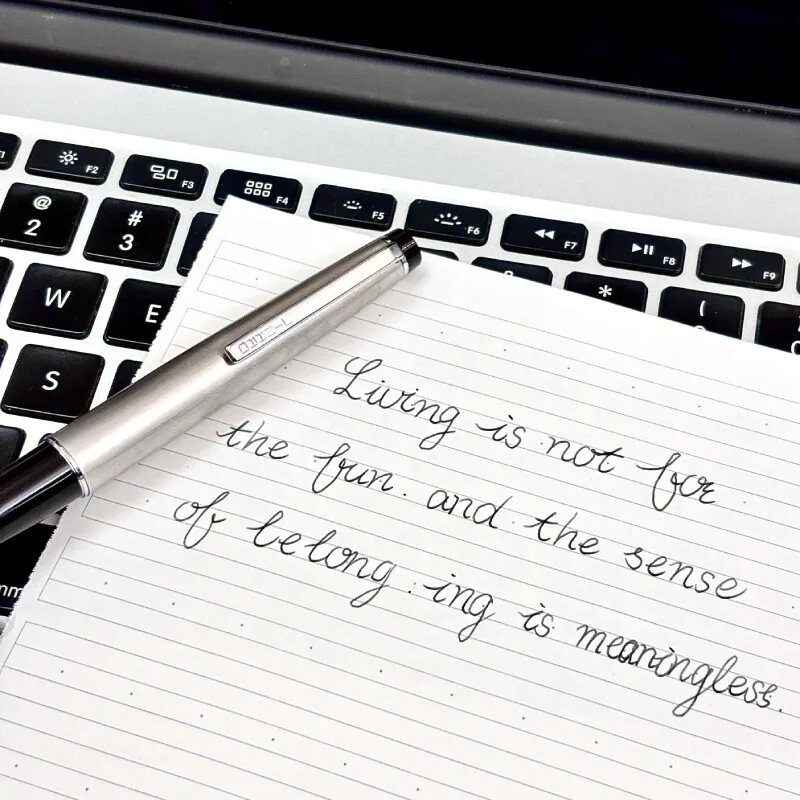 F2
F3
F4
F5
F6
F7
F8
F9
@
2
#
3
*
(
W
E
S
Living is not for
the fun. and the sense
of belong.ing is meaningless.